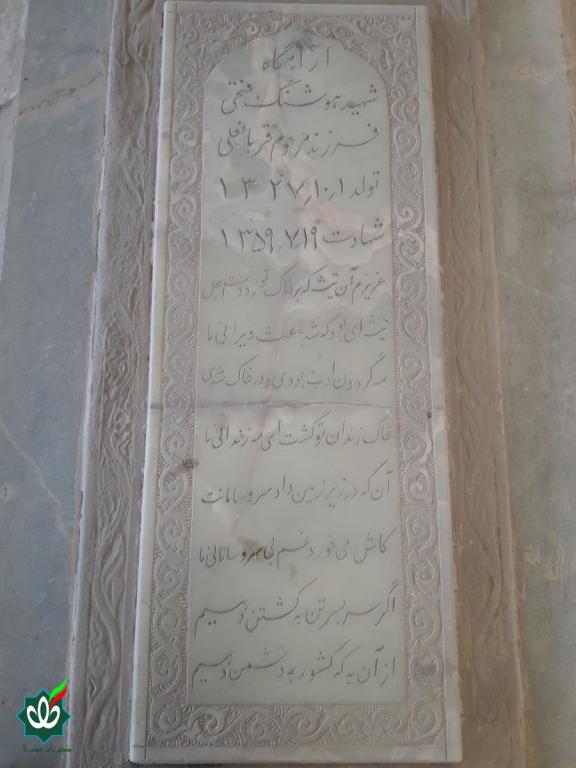 آرامگاه
شهید هوشنگ فتحی
فرزند مرحوم قربانعلی
تولد ۱ ٫۱۰ ٫۱۳۲۷
شهادت ۱۹ ٫۷ ٫۱۳۵۹
عزیزم آن تیشه که بر خاک تو زد دست اجل
تیشه ای بود که شد باعث ویرانی ما
مه گردون ادب بودی و در خاک شدی
خاک زندان تو گشت ای مه زندانی ما
آن که در زیر زمین داد سر و سامانت
کاش می خورد غم بی سر و سامانی ما
اگر سر بسر تن به کشتن دهیم
از آن به که کشور به دشمن دهیم